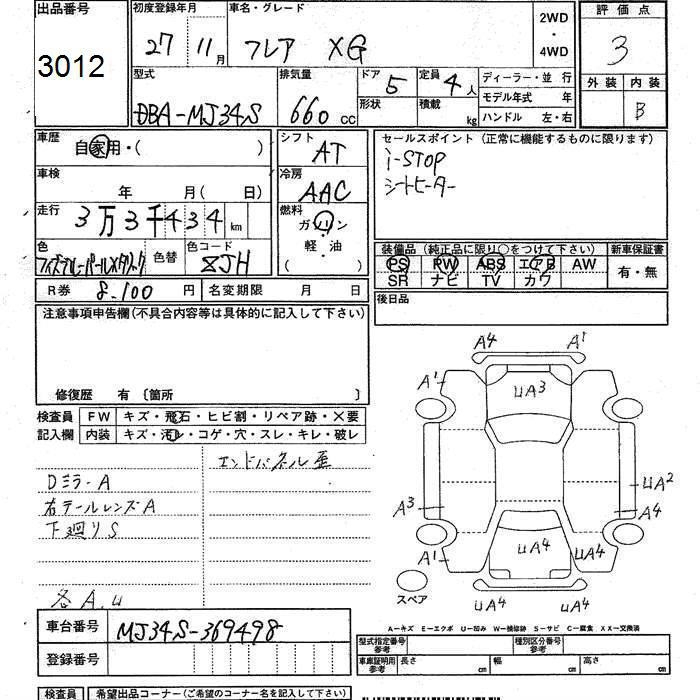 出品番号 初度登録年月 車名・グレード 2WD・4WD 評価点
3012 27 11月 フレア XG 3
型式 排気量 ドア 5 定員 4人 ディーラー・並行 外装 内装
DBA-MJ34S 660cc 形状 積載 kg モデル年式 年 B
ハンドル 左・右
車歴 自家用・( ) シフト AT セールスポイント (正常に機能するものに限ります)
i-STOP
シートヒーター
車検 年 月( 日) 冷房 AAC
走行 3万3千434km 燃料 ガソリン
軽・油
( )
色 色替 色コード ZJH
装備品(純正品に限り○をつけて下さい) 新車保証書
PS PW ABS エアB AW 有・無
SR ナビ TV カワ
R券 8.100円 名変期限 月 日 後日品
注意事項申告欄(不具合内容等は具体的に記入して下さい)
修復歴 有 〔箇所 〕
検査員 FW キズ・飛石・ヒビ割・リペア跡・X要
記入欄 内装 キズ・汚レ・コゲ・穴・スレ・キレ・破レ
エンドパネル歪
DミラーA
右テールレンズA
下廻りS
各A.U
A4 A1
A1 UA3
UA2
A3 A4
A1 UA4 UA4
スペア UA4 UA4
A-キズ E-エクボ U-凹み W-補修跡 S-サビ C-腐食 XX-交換済
車台番号 MJ34S-369498
登録番号
型式指定番号 参考 種別区分番号 参考
車庫証明用 参考 長さ cm 幅 cm 高さ cm
検査員 希望出品コーナー(ご希望のコーナー名を記入して下さい)